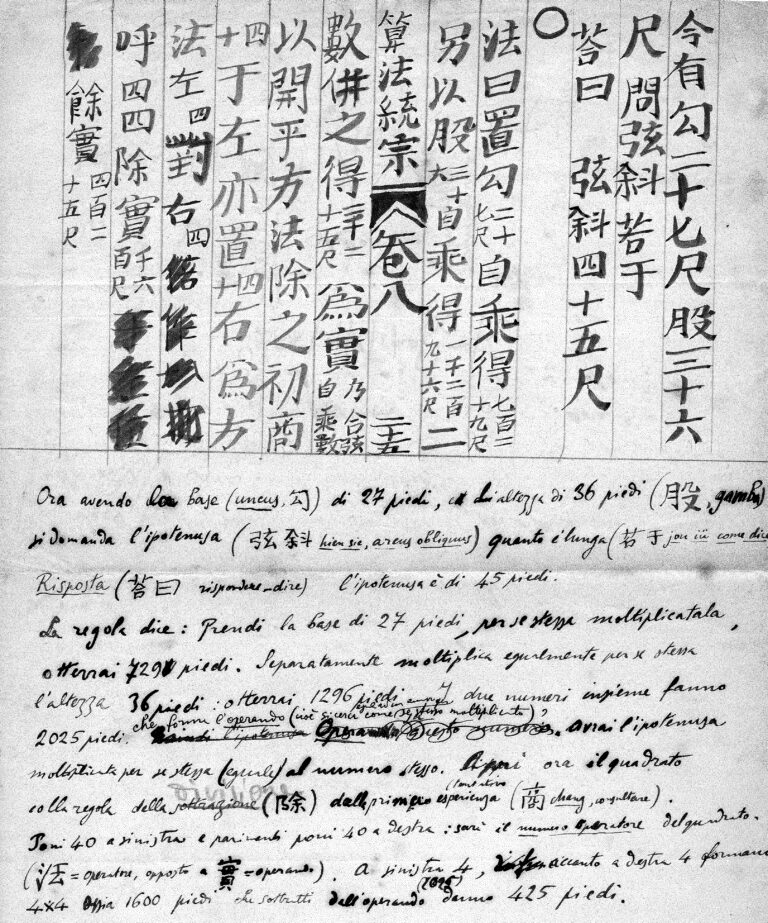 今有勾二十七尺股三十六
尺問弦斜若于
荅曰 弦斜四十五尺
○
法曰置勾二十七尺自乘得七百二十九尺
另以股三十六自乘得一千二百九十六尺二
算法統宗 卷八
數併之得二千二十五尺爲實乃合弦自乘數
以開平方法除之初商
四十于左亦置四十右爲方
法左四對右四
呼四四除實千六百尺
餘實四百二十五尺
Ora avendo la base (uncus, 勾) di 27 piedi, di altezza di 36 piedi (股, gamba)
si domanda l'ipotenusa (弦斜 hien sie, arcus obliquus) quanto è lunga (若于 jou iü come dice
Risposta (荅曰 rispondere-dire) l'ipotenusa è di 45 piedi.
La regola dice: Prendi la base di 27 piedi, per se stessa moltiplicatala,
otterrai 729 piedi. Separatamente moltiplica egualmente per se stessa
l'altezza 36 piedi: otterrai 1296 piedi. I due numeri insieme fanno
2025 piedi. che forma l'operando (cioè si cerca come se stesso moltiplicato) Avrai l'ipotenusa
moltiplicata per se stessa (eguale) al numero stesso. Apri ora il quadrato
colla regola della sottrazione (除) dalla prima tentativo esperienza (商 chang, consultare).
Poni 40 a sinistra e parimenti poni 40 a destra: sarà il numero operatore del quadrato.
(法 = operatore, opposto a 實 = operando). A sinistra 4, accanto a destra 4 formano
4x4 ossia 1600 piedi che sottratti dall'operando (2025) danno 425 piedi.